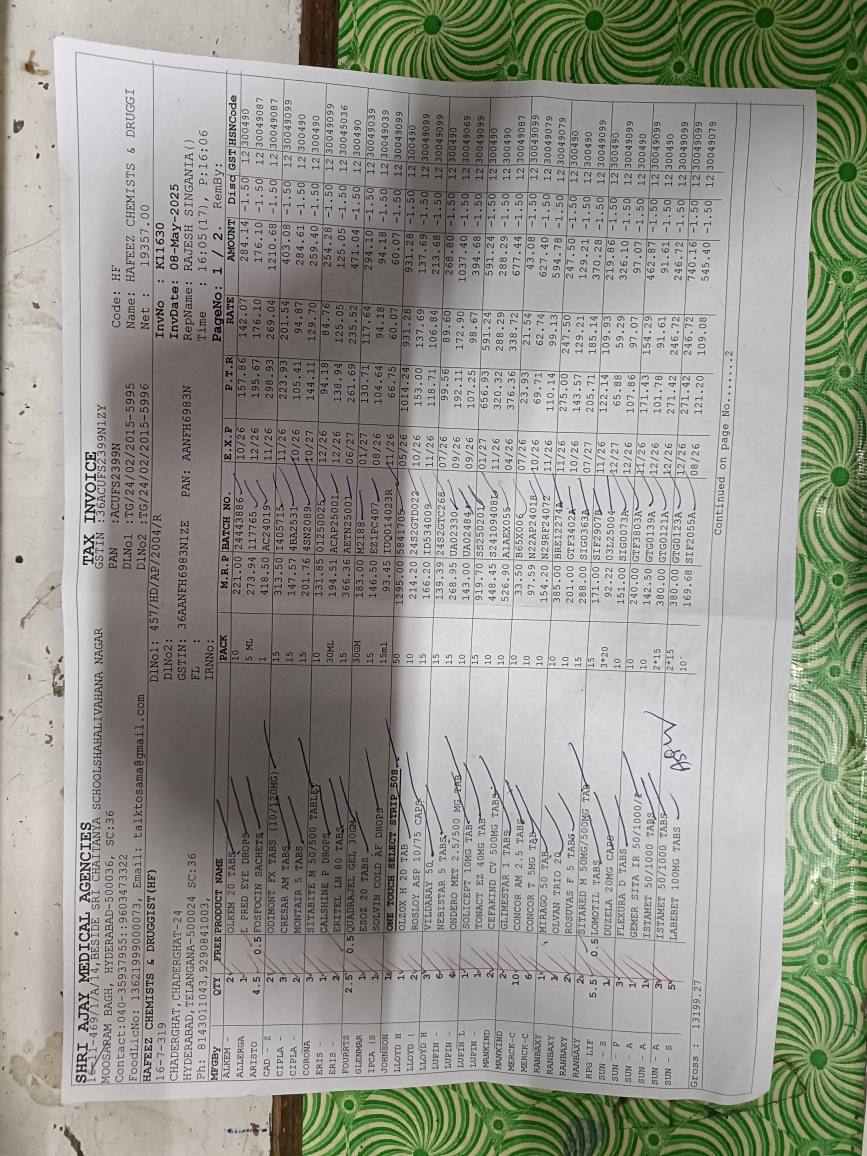 TAX INVOICE
SHRI AJAY MEDICAL AGENCIES
16-11-469/1/A/14,BESIDE SRI CHAITANYA SCHOOLSHAHALIVAHANA NAGAR
MOOSARAM BAGH, HYDERABAD-500036, SC:36
Contact:040-35937955::9603473322
FoodLicNo: 13621999000073, Email: talktosama@gmail.com
GSTIN :36ACUFS2399N1ZY
PAN :ACUFS2399N
DLNo1 :TG/24/02/2015-5995
DlNo2 :TG/24/02/2015-5996
Code: HF
Name: HAFEEZ CHEMISTS & DRUGGI
Net : 19357.00
HAFEEZ CHEMISTS & DRUGGIST(HF)
16-7-319
CHADERGHAT, CHADERGHAT-24
HYDERABAD,TELANGANA-500024 SC:36
Ph: 8143011043,9290841003,
DlNo1: 457/HD/AP/2004/R
DlNo2:
GSTIN: 36AANFH6983N1ZE PAN: AANFH6983N
FL :
IRNNo:
InvNo : K11630
InvDate: 08-May-2025
RepName: RAJESH SINGANIA()
Time : 16:05(17), P:16:06
PageNo: 1 / 2. RemBy:
MFGBy QTY FREE PRODUCT NAME PACK M.R.P BATCH NO. E.X.P P.T.R RATE AMOUNT Disc GST HSNCode
ALKEM - 2 OLKEM 20 TABS 10 221.00 24443886 10/26 157.86 142.07 284.14 -1.50 12 300490
ALLERGA 1 L PRED EYE DROPS 5 ML 273.94 AL17765 12/26 195.67 176.10 176.10 -1.50 12 30049087
ARISTO 4.5 0.5 FOSFOCIN SACHETS 1 418.50 AC240419 11/26 298.93 269.04 1210.68 -1.50 12 30049087
CAD - Z 2 ODIMONT FX TABS (10/120MG) 15 313.50 I405715 11/26 223.93 201.54 403.08 -1.50 12 30049099
CIPLA 3 CRESAR AM TABS 15 147.57 4RA2531 10/26 105.41 94.87 284.61 -1.50 12 300490
CIPLA - 2 MONTAIR 5 TABS 15 201.76 4SN2089 10/27 144.11 129.70 259.40 -1.50 12 300490
CORONA 3 SITABITE M 50/500 TABLET 10 131.85 01250025 12/26 94.18 84.76 254.28 -1.50 12 30049099
ERIS - 1 CALSHINE P DROPS 30ML 194.51 ACAP25001 12/26 138.94 125.05 125.05 -1.50 12 30045036
ERIS - 2 ERITEL LN 80 TABS 15 366.36 AETN25001 06/27 261.69 235.52 471.04 -1.50 12 300490
FOURRTS 2.5 0.5 QUADRAJEL GEL 30GM 30GM 183.00 M2188 01/27 130.71 117.64 294.10 -1.50 12 30049039
GLENMAR 1 ESOZ 20 TABS 15 146.50 EZ1PC407 08/26 104.64 94.18 94.18 -1.50 12 30049039
IPCA (S 1 SOLVIN COLD AF DROPS 15ml 93.45 IUQ014023R 11/26 66.75 60.07 60.07 -1.50 12 30049099
JOHNSON ONE TOUCH SELECT STRIP 50S 50 1295.00 5841705 05/26 1014.24 931.28 931.28 -1.50 12 30049099
LLOYD H 1 OLZOX H 20 TAB 10 214.20 24S2GTD022 10/26 153.00 137.69 137.69 -1.50 12 30049099
LLOYD ( 2 ROSLOY ASP 10/75 CAPS 15 166.20 1D534009 11/26 118.71 106.84 213.68 -1.50 12 30049099
LLOYD H 3 VILDARAY 50 15 139.39 24S2GTC268 07/26 99.56 89.60 268.80 -1.50 12 300490
LUPIN - 6 NEBISTAR 5 TABS 15 268.95 UA02330 09/26 192.11 172.90 1037.40 -1.50 12 30049069
LUPIN 4 ONDERO MET 2.5/500 MG TAB 10 143.00 UA02484 09/26 107.25 98.67 394.68 -1.50 12 30049099
LUPIN L 1 SOLICEPT 10MG TAB 15 919.70 SS250201 01/27 656.93 591.24 591.24 -1.50 12 300490
LUPIN - 1 TONACT EZ 40MG TAB 10 448.45 S24109408L 11/26 320.32 288.29 288.29 -1.50 12 300490
MANKIND 2 CEFAKIND CV 500MG TABS 10 526.90 A1AEX055 04/26 376.36 338.72 677.44 -1.50 12 30049087
MANKIND 2 GLIMESTAR 1 TABS 10 33.50 B65X006 07/26 23.93 21.54 43.08 -1.50 12 30049099
MERCK-C 10 CONCOR AM 2.5 TABS 10 97.59 N22AP24018 10/26 69.71 62.74 627.40 -1.50 12 30049079
MERCK-C 6 CONCOR 5MG TAB 10 154.20 N29RP24072 11/26 110.14 99.13 594.78 -1.50 12 30049079
RANBAXY 1 MIRAGO 50 TAB 10 385.00 BRE1227A 11/26 275.00 247.50 247.50 -1.50 12 300490
RANBAXY 1 OLVAN TRIO 20 10 201.00 GTF3402A 10/26 143.57 129.21 129.21 -1.50 12 300490
RANBAXY 2 ROSUVAS F 5 TABS 15 288.00 SIG0363A 07/27 205.71 185.14 370.28 -1.50 12 30049099
RANBAXY 2 SITARED M 50MG/500MG TAB 15 171.00 SIF2907B 11/26 122.14 109.93 219.86 -1.50 12 300490
RPG LIF 5.5 0.5 LOMOTIL TABS 3*20 92.22 03L25004 12/27 65.88 59.29 326.10 -1.50 12 30049099
SUN - S 1 DUZELA 20MG CAPS 10 151.00 SIG0073A 12/26 107.86 97.07 97.07 -1.50 12 300490
SUN - P 3 FLEXURA D TABS 10 240.00 GTF3803A 11/26 171.43 154.29 462.87 -1.50 12 30049099
SUN - A 1 GEMER SITA IR 50/1000/2 10 142.50 GTG0139A 12/26 101.78 91.61 91.61 -1.50 12 300490
SUN - A 1 ISTAMET 50/1000 TABS 2*15 380.00 GTG0121A 12/26 271.42 246.72 246.72 -1.50 12 30049099
SUN - A 3 ISTAMET 50/1000 TABS 2*15 380.00 GTG0123A 12/26 271.42 246.72 740.16 -1.50 12 30049099
SUN - S 5 LABEBET 100MG TABS 10 169.68 SIF2055A 08/26 121.20 109.08 545.40 -1.50 12 30049079
Gross : 13199.27
Continued on page No.......2